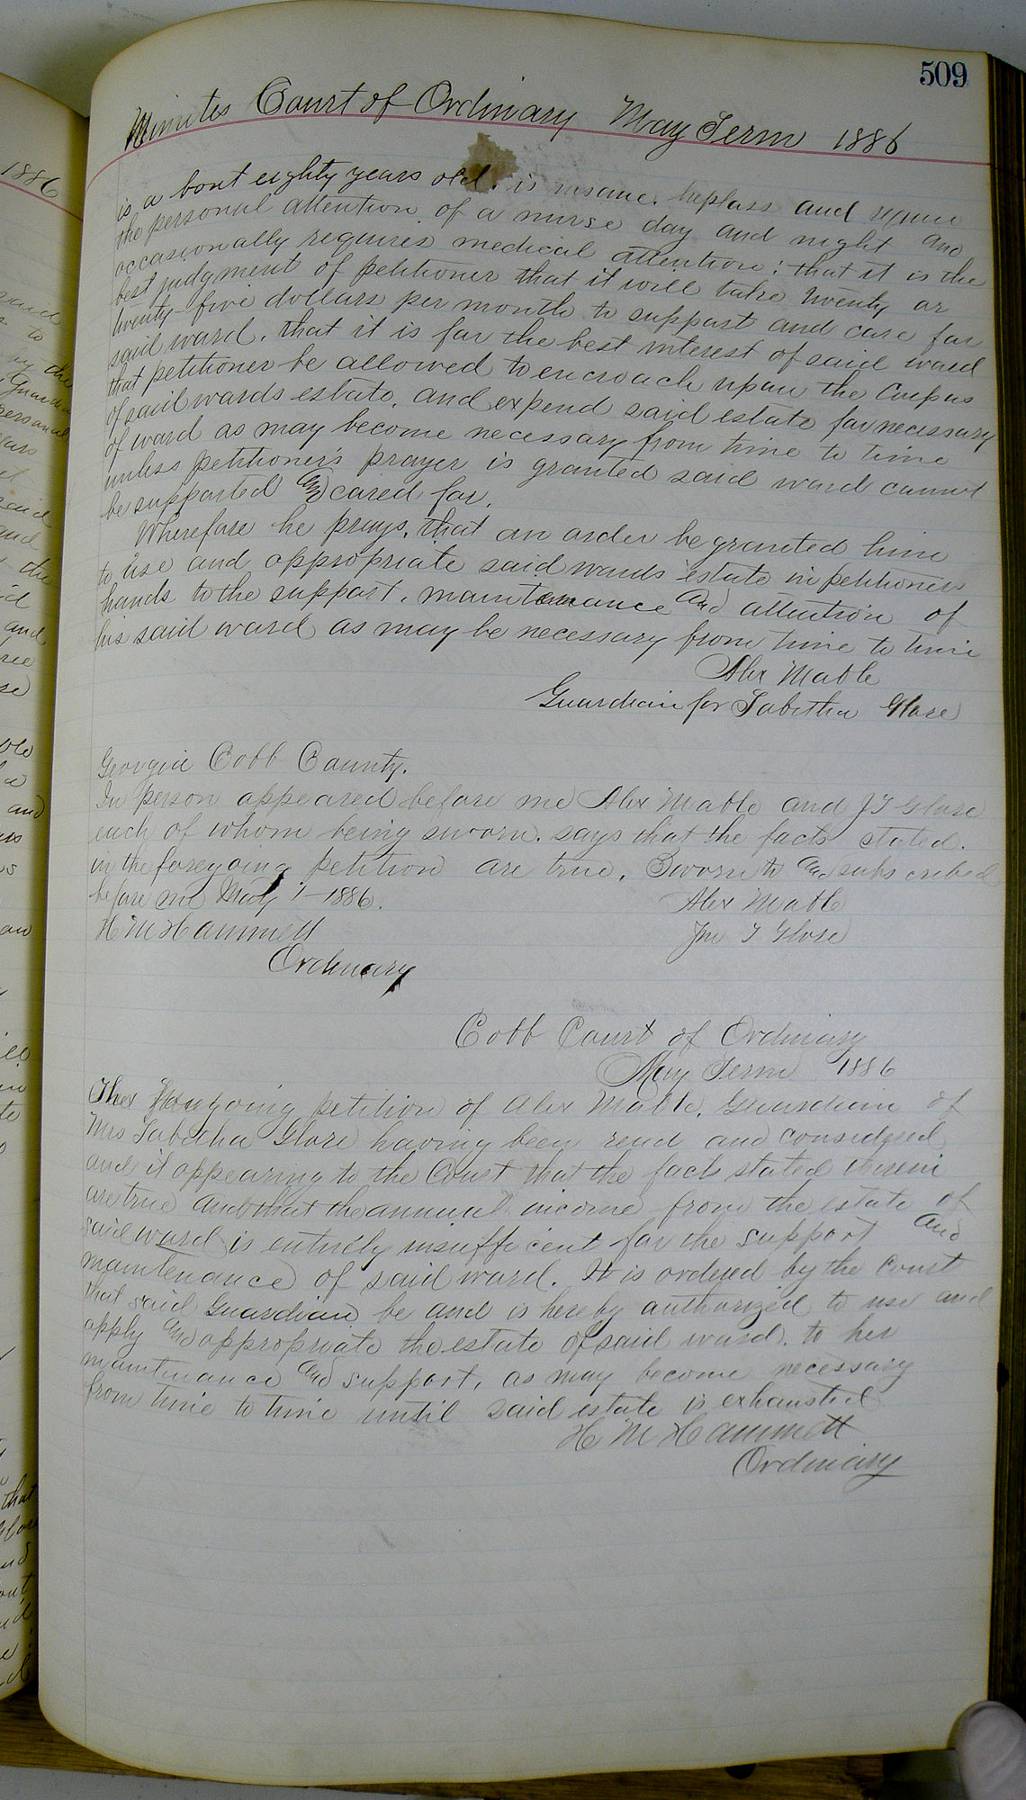 509
Minutes Court of Ordinary May Term 1886
is a bout eighty years old. is insane. helpless and require
the personal attention of a nurse day and night and
occasionally requires medical attention; that it is the
best judgment of petitioner that it will take twenty or
twenty-five dollars per month to support and care for
said ward. that it is for the best interest of said ward
that petitioner be allowed to encroach upon the Corpus
of said wards estate. and expend said estate for necessary
of ward as may become necessary from time to time
unless petitioner's prayer is granted said ward cannot
be supported and cared for.
Wherefore he prays, that an order be granted him
to use and appropriate said wards estate in petitioners
hands to the support. maintenance and attention of
his said ward as may be necessary from time to time
Alex Mable
Guardian for Tabitha Glore
Georgia Cobb County.
In person appeared before me Alex Mable and J T Glore
each of whom being sworn. says that the facts stated.
in the foregoing petition are true. Sworn to and subscribed
before me May 1 - 1886. Alex Mable
H M Hammett Jno T Glore
Ordinary
Cobb Court of Ordinary
May Term 1886
The foregoing petition of Alex Mable. Guardian of
Mrs Tabitha Glore having been read and considered
and it appearing to the Court that the facts stated therein
are true and that the annual income from the estate of
said ward is entirely insufficient for the support and
maintenance of said ward. It is ordered by the Court
that said Guardian be and is hereby authorized to use and
apply and appropriate the estate of said ward. to her
maintenance and support, as may become necessary
from time to time until said estate is exhausted
H M Hammett
Ordinary